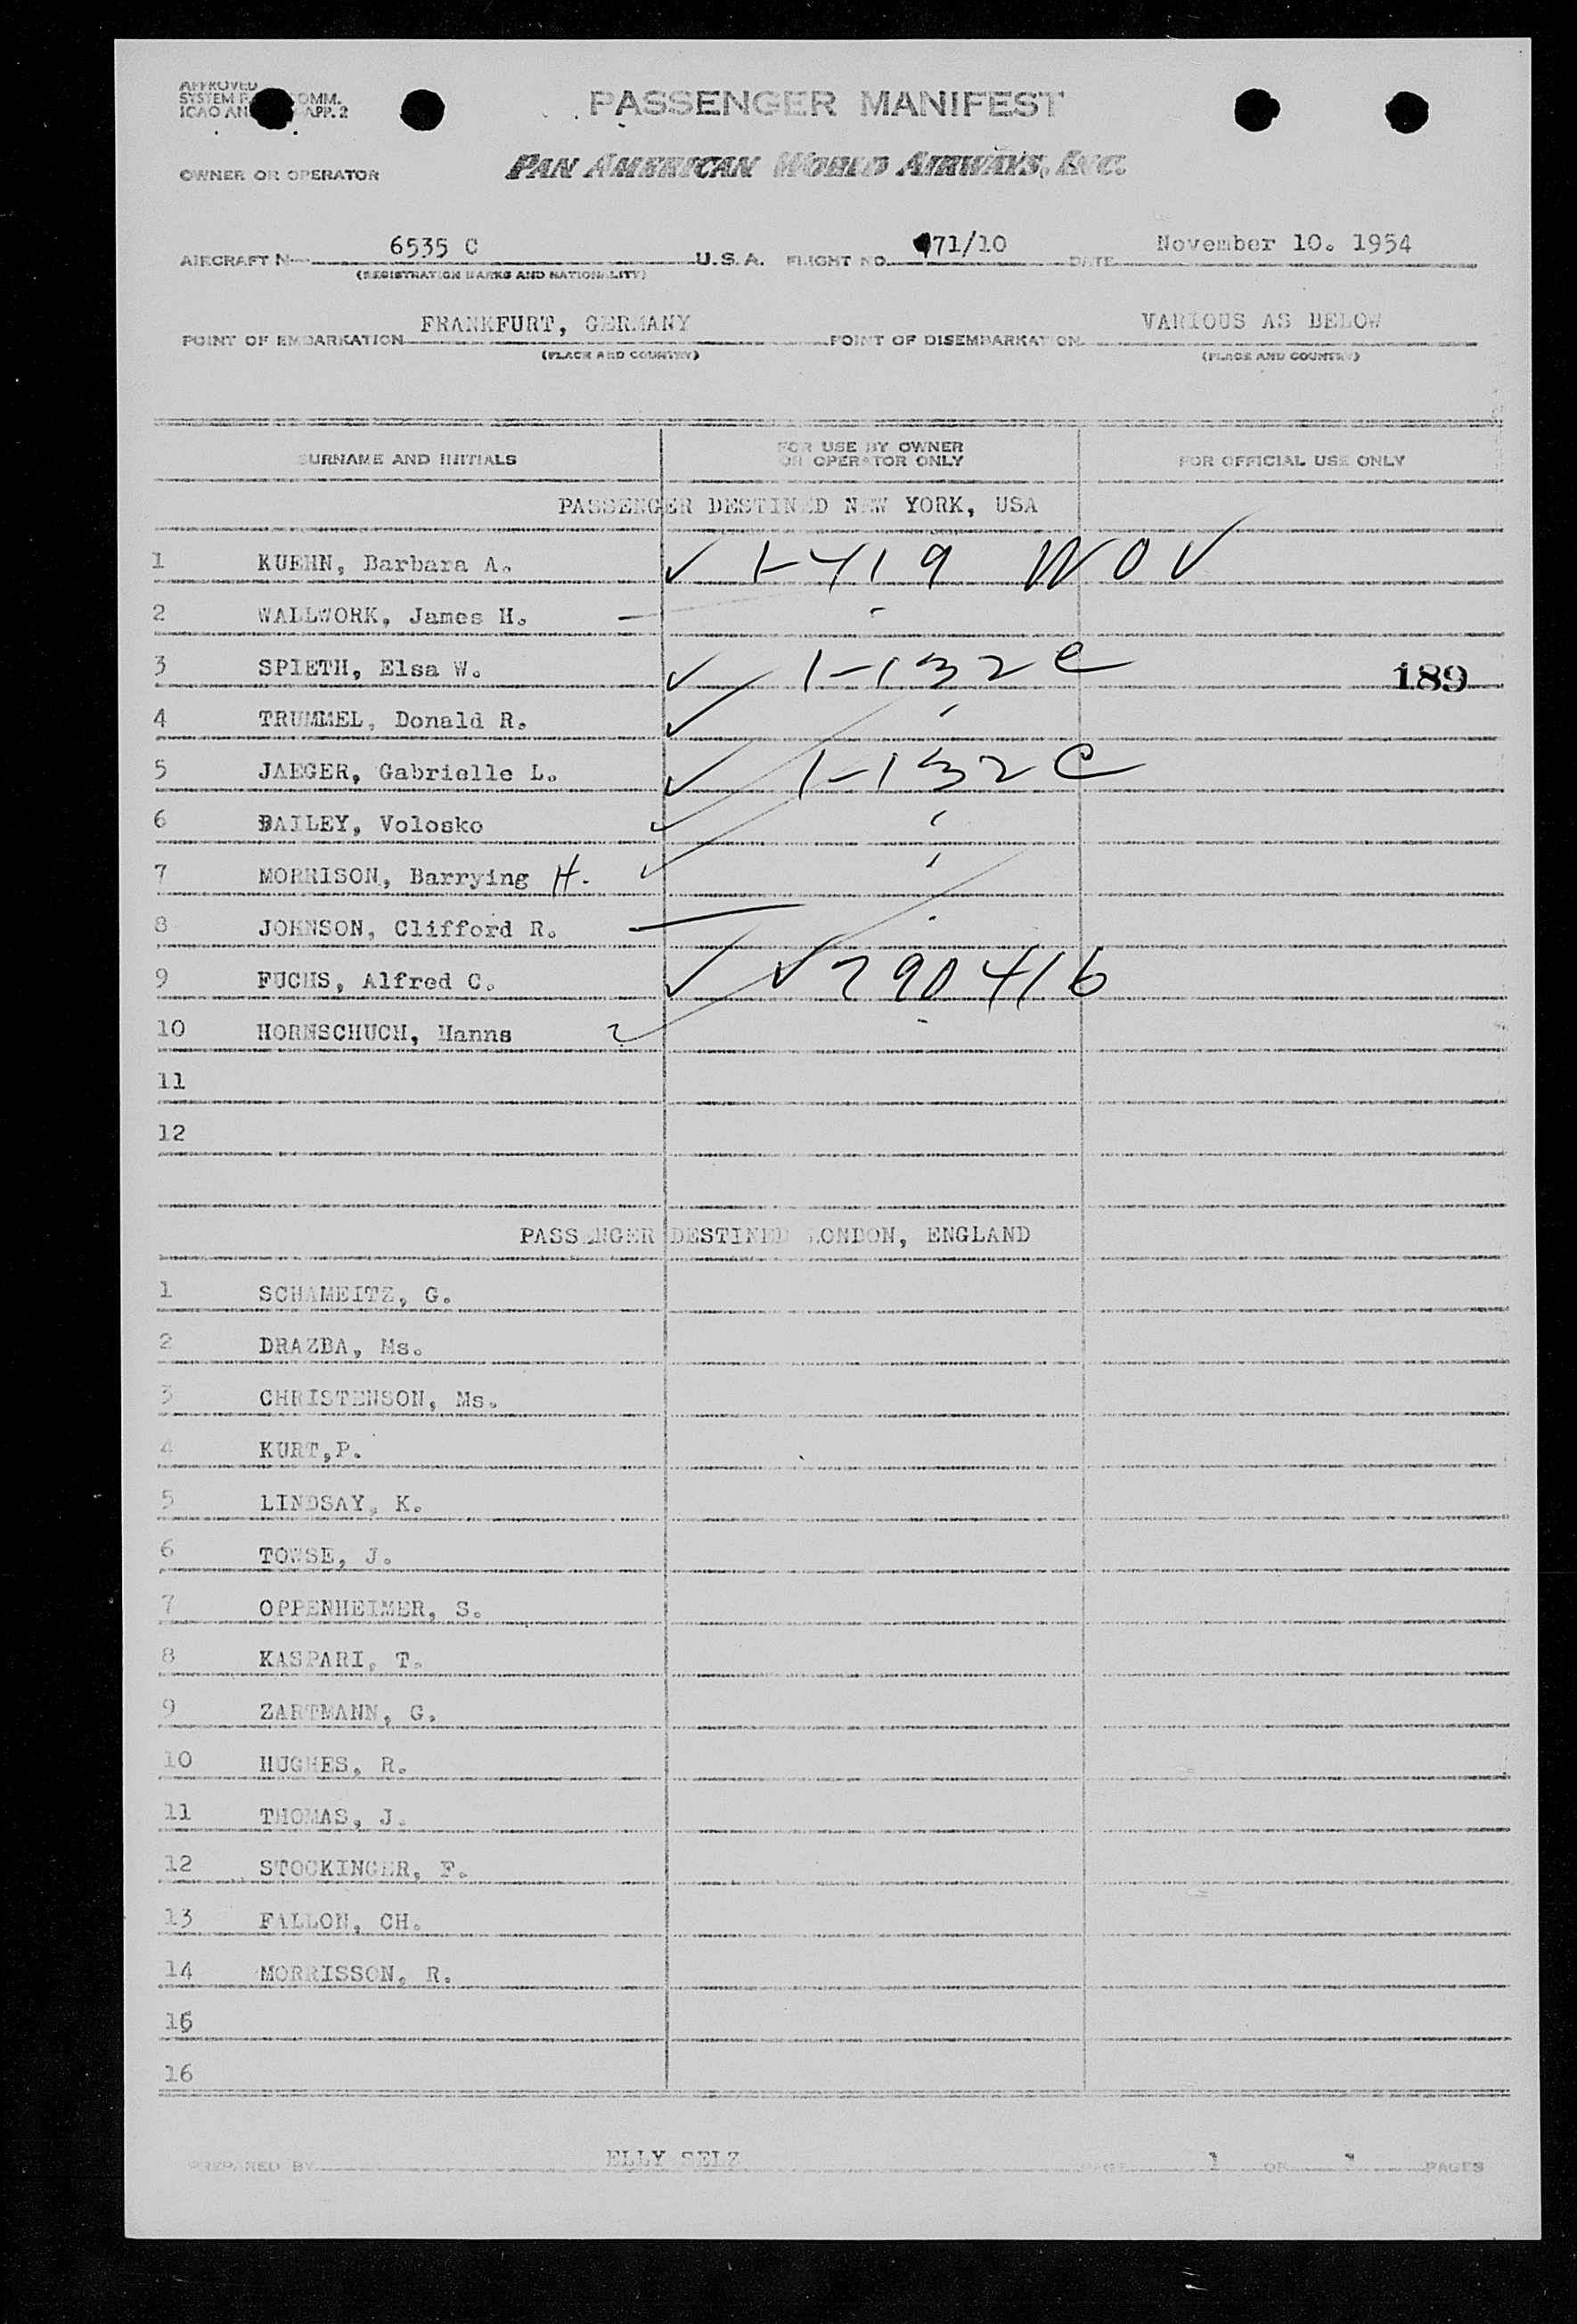 APPROVED
SYSTEM COMM.
ICAO APP. 2
PASSENGER MANIFEST
OWNER OR OPERATOR PAN AMERICAN WORLD AIRWAYS, INC.
AIRCRAFT N 6535 C U.S.A. FLIGHT NO. 71/10 DATE November 10. 1954
(REGISTRATION MARKS AND NATIONALITY)
POINT OF EMBARKATION FRANKFURT, GERMANY POINT OF DISEMBARKATION VARIOUS AS BELOW
(PLACE AND COUNTRY) (PLACE AND COUNTRY)
SURNAME AND INITIALS FOR USE BY OWNER OR OPERATOR ONLY FOR OFFICIAL USE ONLY
PASSENGER DESTINED NEW YORK, USA
1 KUEHN, Barbara A. ✓ 1-419 WOV
2 WALLWORK, James H. —
3 SPIETH, Elsa W. ✓ 1-132 C 189
4 TRUMMEL, Donald R. ✓
5 JAEGER, Gabrielle L. ✓ 1-132 C
6 BAILEY, Volosko ✓
7 MORRISON, Barrying H. ✓
8 JOHNSON, Clifford R. —
9 FUCHS, Alfred C. ✓ ✓ 290416
10 HORNSCHUCH, Hanns
11
12
PASSENGER DESTINED LONDON, ENGLAND
1 SCHAMEITZ, G.
2 DRAZBA, Ms.
3 CHRISTENSON, Ms.
4 KURT,P.
5 LINDSAY, K.
6 TOWSE, J.
7 OPPENHEIMER, S.
8 KASPARI, T.
9 ZARTMANN, G.
10 HUGHES, R.
11 THOMAS, J.
12 STOCKINGER, F.
13 FALLON, CH.
14 MORRISSON, R.
15
16
PREPARED BY ELLY SELZ PAGE 1 OF 1 PAGES